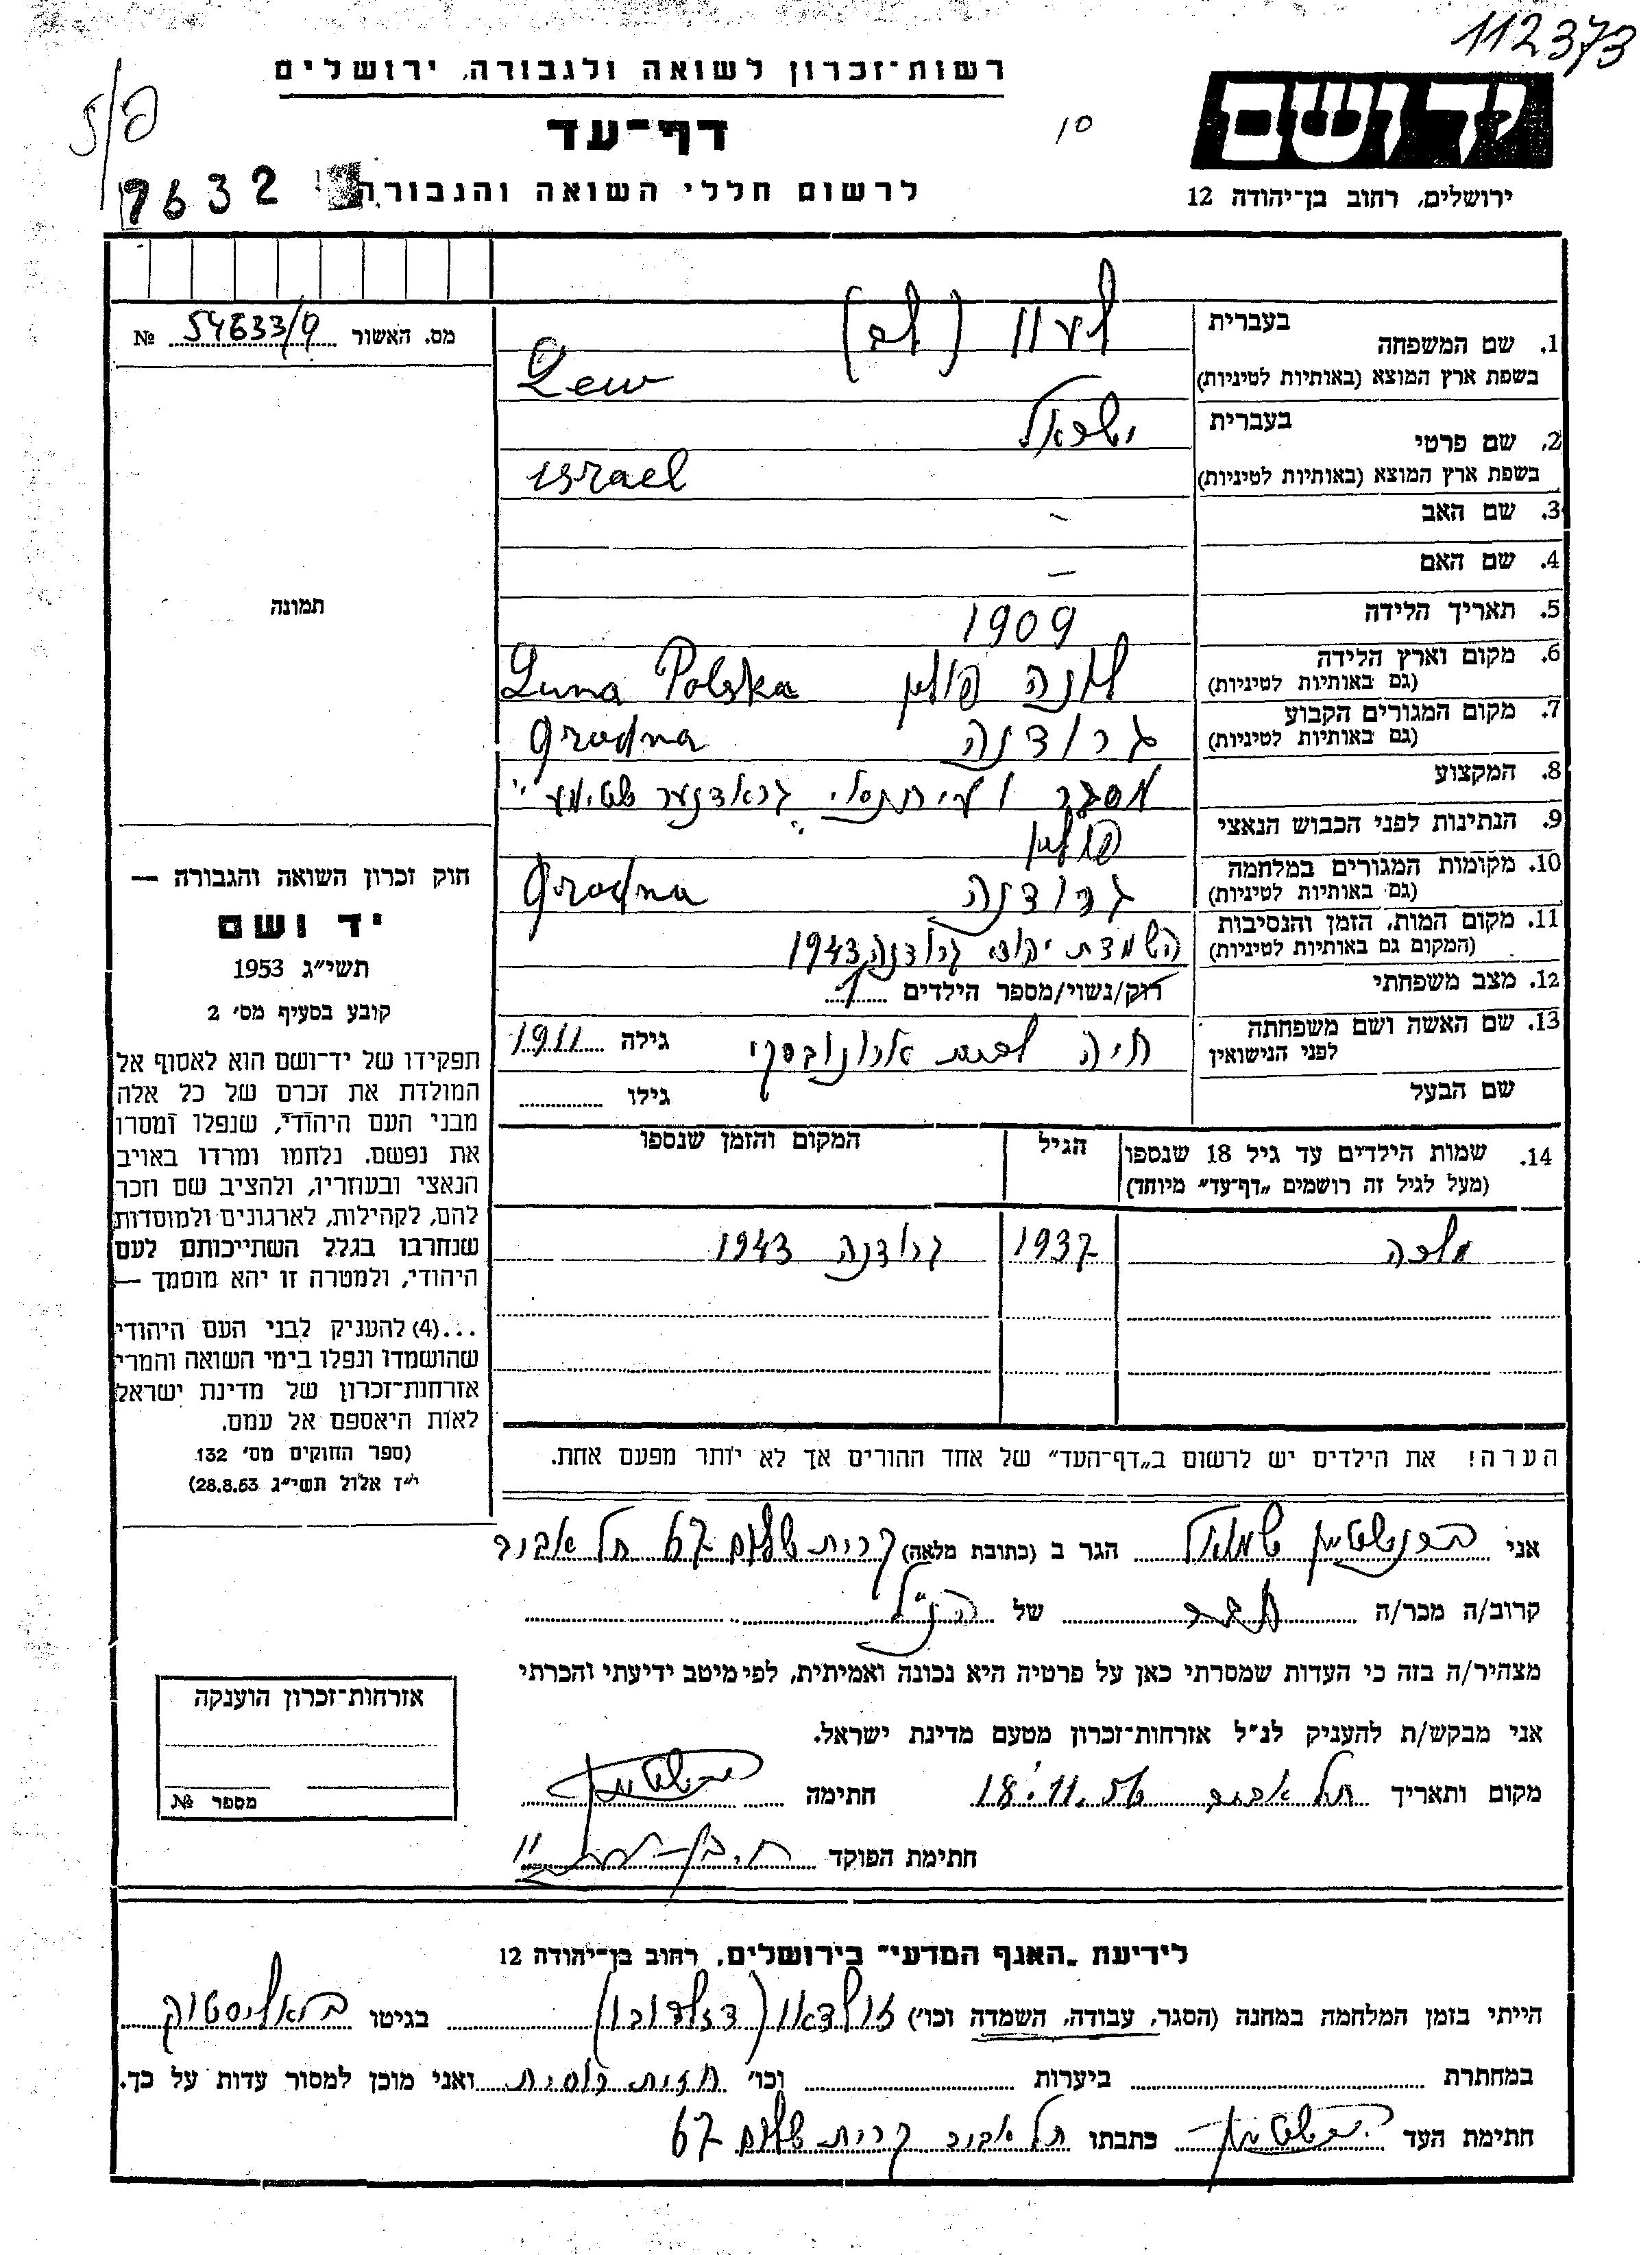 112373
רשות־זכרון לשואה ולגבורה, ירושלים
דף־עד
לרשום חללי השואה והגבורה
10
7632
יד ושם
ירושלים, רחוב בן־יהודה 12
מס. האשור 54633/9 №
תמונה
חוק זכרון השואה והגבורה —
יד ושם
תשי״ג 1953
קובע בסעיף מס׳ 2
תפקידו של יד־ושם הוא לאסוף אל
המולדת את זכרם של כל אלה
מבני העם היהודי, שנפלו ומסרו
את נפשם. נלחמו ומרדו באויב
הנאצי ובעוזריו, ולהציב שם וזכר
להם, לקהילות, לארגונים ולמוסדות
שנחרבו בגלל השתייכותם לעם
היהודי, ולמטרה זו יהא מוסמך —
...(4) להעניק לבני העם היהודי
שהושמדו ונפלו בימי השואה והמרי
אזרחות־זכרון של מדינת ישראל
לאות היאספם אל עמם.
(ספר החוקים מס׳ 132
י״ז אלול תשי״ג 28.8.53)
בעברית
1. שם המשפחה (לב)
בשפת ארץ המוצא (באותיות לטיניות) Lew
בעברית
2. שם פרטי ישראל
בשפת ארץ המוצא (באותיות לטיניות) Israel
3. שם האב -
4. שם האם —
5. תאריך הלידה 1909
6. מקום וארץ הלידה לונה פולין Luna Polska
(גם באותיות לטיניות)
7. מקום המגורים הקבוע גרודנה Grodna
(גם באותיות לטיניות)
8. המקצוע מסגר ועיתונאי "גראדנער שטימע"
9. הנתינות לפני הכבוש הנאצי פולין
10. מקומות המגורים במלחמה גרודנה Grodna
(גם באותיות לטיניות)
11. מקום המות, הזמן והנסיבות השמדת יהודי גרודנה 1943
(המקום גם באותיות לטיניות)
12. מצב משפחתי רוק/נשוי/מספר הילדים 1
13. שם האשה ושם משפחתה חיה לבית ארונובסקי גילה 1911
לפני הנישואין
שם הבעל גילו
14. שמות הילדים עד גיל 18 שנספו הגיל המקום והזמן שנספו
(מעל לגיל זה רושמים „דף־עד״ מיוחד)
מלכה 1937 גרודנה 1943
הערה! את הילדים יש לרשום ב„דף־העד״ של אחד ההורים אך לא יותר מפעם אחת.
אני ברנשטיין שמואל הגר ב (כתובת מלאה) קרית שלום 67 תל אביב
קרוב/ה מכר/ה חבר של הנ"ל
מצהיר/ה בזה כי העדות שמסרתי כאן על פרטיה היא נכונה ואמיתית, לפי מיטב ידיעתי והכרתי
אני מבקש/ת להעניק לנ״ל אזרחות־זכרון מטעם מדינת ישראל.
מקום ותאריך תל אביב 18.11.56 חתימה
חתימת הפוקד
אזרחות־זכרון הוענקה
מספר №
לידיעת „האגף המדעי״ בירושלים, רחוב בן־יהודה 12
הייתי בזמן המלחמה במחנה (הסגר, עבודה, השמדה וכו׳) בגיטו ביאליסטוק
במחתרת ביערות וכו׳ חזית רוסית ואני מוכן למסור עדות על כך.
חתימת העד כתבתו תל אביב קרית שלום 67